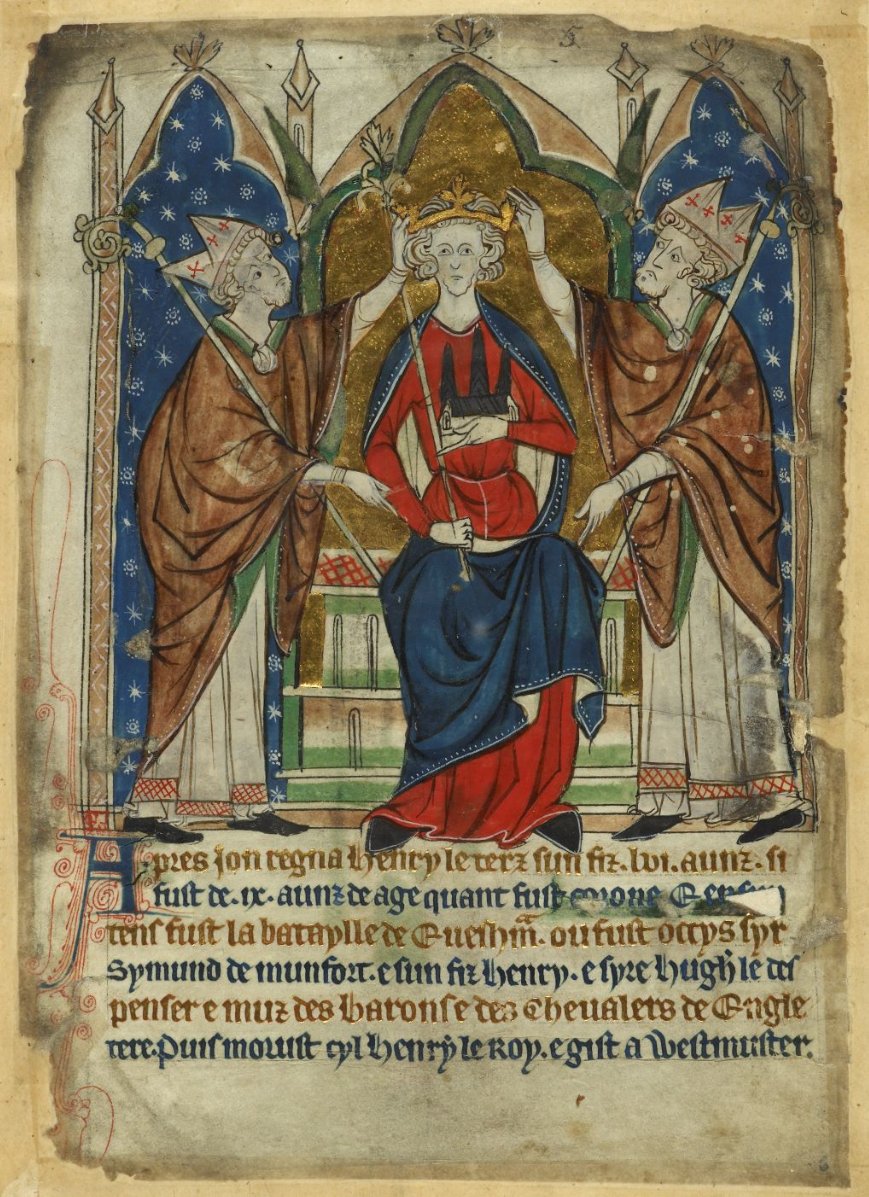 5
Apres Jon regna Henry le terz sun fiz. lvi. aunz. si
fust de .ix. aunz de age quant fust corone. E en sun
tens fust la bataylle de Euesham. ou fust occys syr
Symund de munfort. e sun fiz Henry. e syre Hugh le des
penser e muz des barons e des chevalers de Engle
tere. Puis morust cyl Henry le Roy. e gist a Westmuster.
6